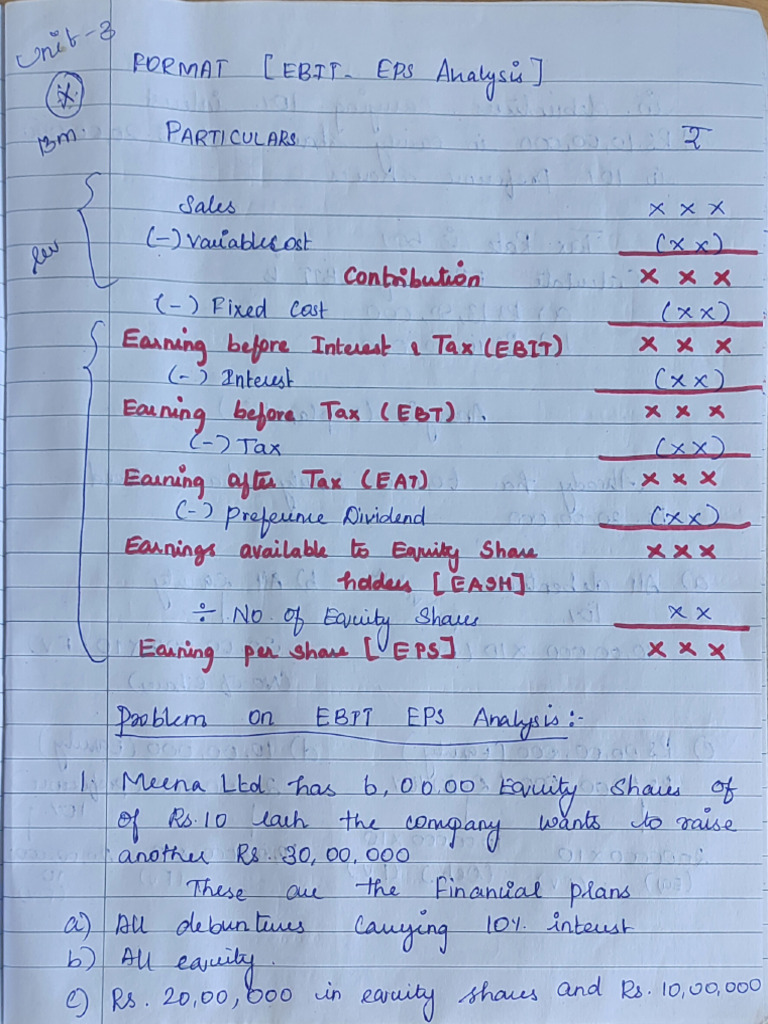 Unit-3
FORMAT [EBIT- EPS Analysis]
13m.
PARTICULARS ₹
Sales x x x
(-) Variable cost (xx)
Contribution x x x
(-) Fixed Cost (xx)
Earning before Interest & Tax (EBIT) x x x
(-) Interest (xx)
Earning before Tax (EBT) x x x
(-) Tax (xx)
Earning after Tax (EAT) x x x
(-) Preference Dividend (xx)
Earnings available to Equity Share x x x
holders [EASH]
÷ No. of Equity Shares x x
Earning per share [EPS] x x x
Problem on EBIT EPS Analysis:-
1. Meena Ltd has 6,00.00 Equity Shares of
of Rs.10 each the company wants to raise
another Rs. 30,00,000
These are the Financial plans
a) All debuntures Carrying 10% interest
b) All equity.
c) Rs. 20,00,000 in equity shares and Rs. 10,00,000